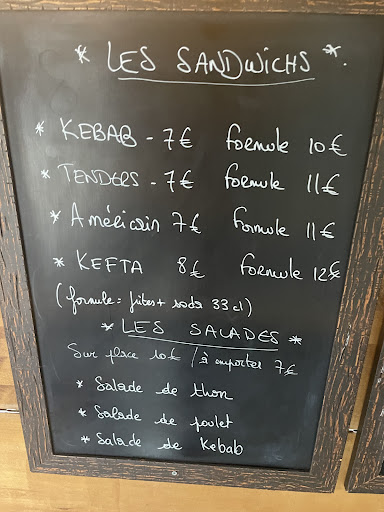 * LES SANDWICHS *.
* KEBAB - 7€ formule 10€
* TENDERS - 7€ formule 11€
* Américain 7€ formule 11€
* KEFTA 8€ formule 12€
(formule = frites + soda 33 cl)
* LES SALADES *
Sur place 10€ / à emporter 7€
* Salade de thon
* Salade de poulet
* Salade de Kebab